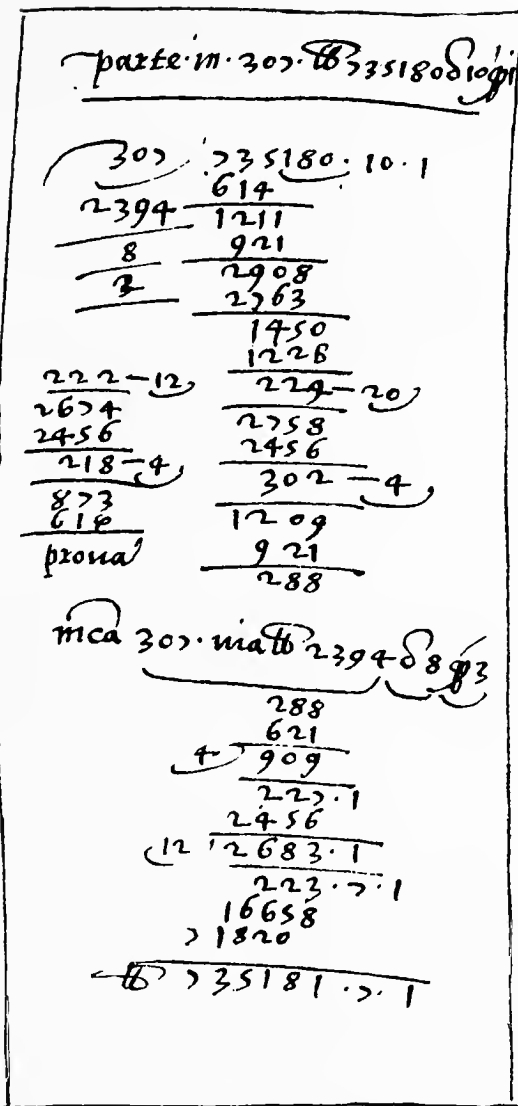 parte·in·307·lb 735180 δ 10 pi
307 735180·10·1
614
2394 1211
8 921
3 2908
2763
1450
1226
222—12 224—20
2674 2758
2456 2456
218—4 302—4
873 1209
614 921
proua 288
mca 307·uia lb 2394 δ 8 p 3
288
621
4 909
227·1
2456
12 2683·1
223·7·1
16658
71820
lb 735181·7·1